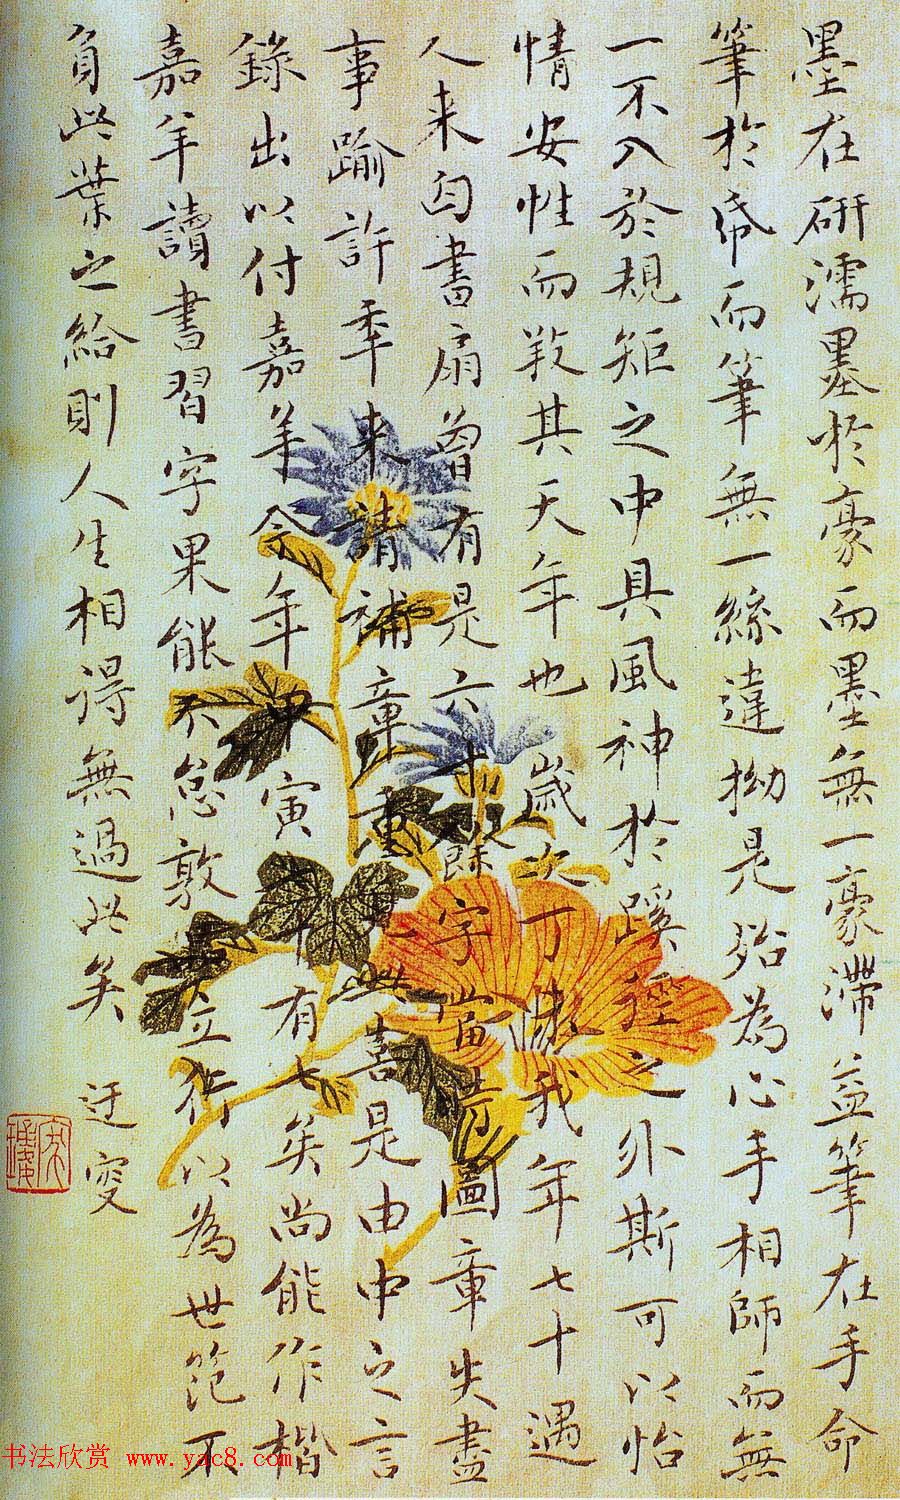 墨在研濡墨於豪而墨無一豪滯益筆在手命
筆於帋而筆無一絲違拗是殆為心手相師而無
一不入於規矩之中具風神於蹊徑之外斯可以怡
情安性而敩其天年也 歲次丁未我年七十遇
人来囪書扇曾有是六十餘字當時圖章失盡
事踰許季来請補章重見此喜是由中之言
錄出以付嘉羊今年甲寅七十有七矣尚能作楷
嘉羊讀書習字果能不怠敦大立行以為世範不
負此葉之給則人生相得無過此矣 迂叟
书法欣赏 www.yac8.com